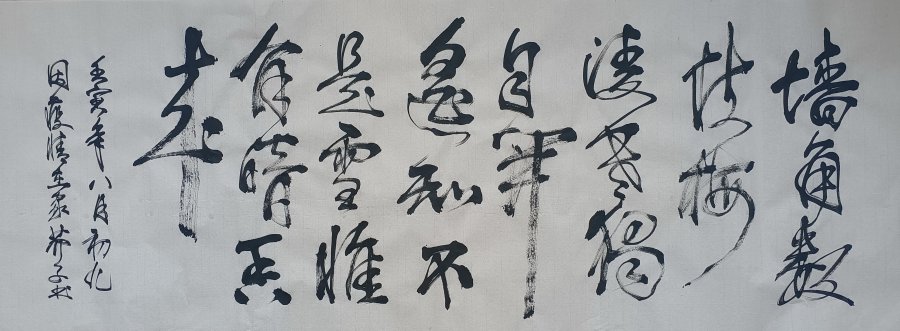 墙角数
枝梅
凌寒獨
自开
遥知不
是雪惟
余暗香
来
壬寅年八月初九
因疫情在家芥子书